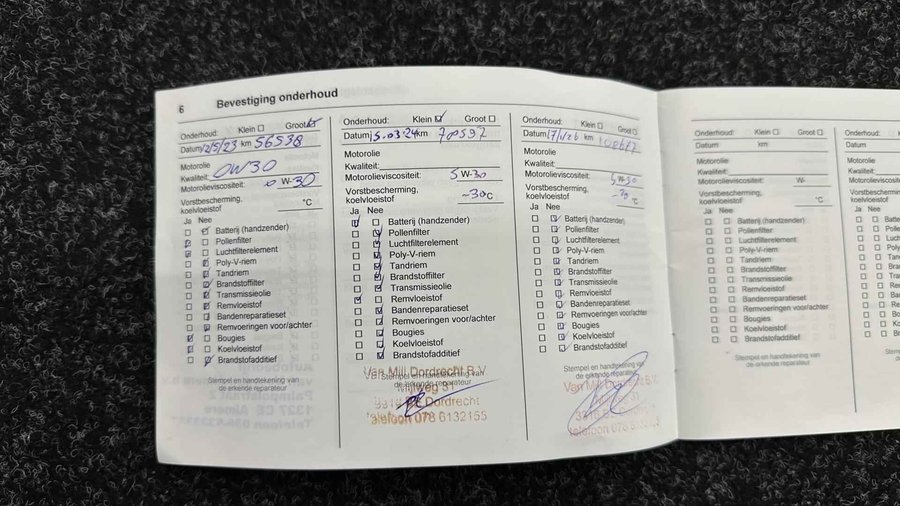 6 Bevestiging onderhoud
Onderhoud: Klein Groot
Datum 12/5/23 km 56538
Motorolie
Kwaliteit: 0W30
Motorolieviscositeit: 0 W-30
Vorstbescherming,
koelvloeistof °C
Ja Nee
Batterij (handzender)
Pollenfilter
Luchtfilterelement
Poly-V-riem
Tandriem
Brandstoffilter
Transmissieolie
Remvloeistof
Bandenreparatieset
Remvoeringen voor/achter
Bougies
Koelvloeistof
Brandstofadditief
Stempel en handtekening van
de erkende reparateur
Onderhoud: Klein Groot
Datum 15.03.24 km
Motorolie
Kwaliteit:
Motorolieviscositeit: 5 W-30
Vorstbescherming,
koelvloeistof -30°C
Ja Nee
Batterij (handzender)
Pollenfilter
Luchtfilterelement
Poly-V-riem
Tandriem
Brandstoffilter
Transmissieolie
Remvloeistof
Bandenreparatieset
Remvoeringen voor/achter
Bougies
Koelvloeistof
Brandstofadditief
Van Mill Dordrecht B.V.
Stempel en handtekening van
de erkende reparateur
Mijlweg 31
Dordrecht
Telefoon 078 6132155
Onderhoud: Klein Groot
Datum km
Motorolie
Kwaliteit:
Motorolieviscositeit: 5 W-30
Vorstbescherming,
koelvloeistof °C
Ja Nee
Batterij (handzender)
Pollenfilter
Luchtfilterelement
Poly-V-riem
Tandriem
Brandstoffilter
Transmissieolie
Remvloeistof
Bandenreparatieset
Remvoeringen voor/achter
Bougies
Koelvloeistof
Brandstofadditief
Stempel en handtekening van
de erkende reparateur
Van Mill Dordrecht B.V.
Mijlweg 31
Telefoon 078 6132155
Onderhoud: Klein Groot
Datum km
Motorolie
Kwaliteit:
Motorolieviscositeit: W-
Vorstbescherming,
koelvloeistof °C
Ja Nee
Batterij (handzender)
Pollenfilter
Luchtfilterelement
Poly-V-riem
Tandriem
Brandstoffilter
Transmissieolie
Remvloeistof
Bandenreparatieset
Remvoeringen voor/achter
Bougies
Koelvloeistof
Brandstofadditief
Stempel en handtekening van
de erkende reparateur
Onderhoud:
Datum
Motorolie
Kwaliteit:
Ja Nee